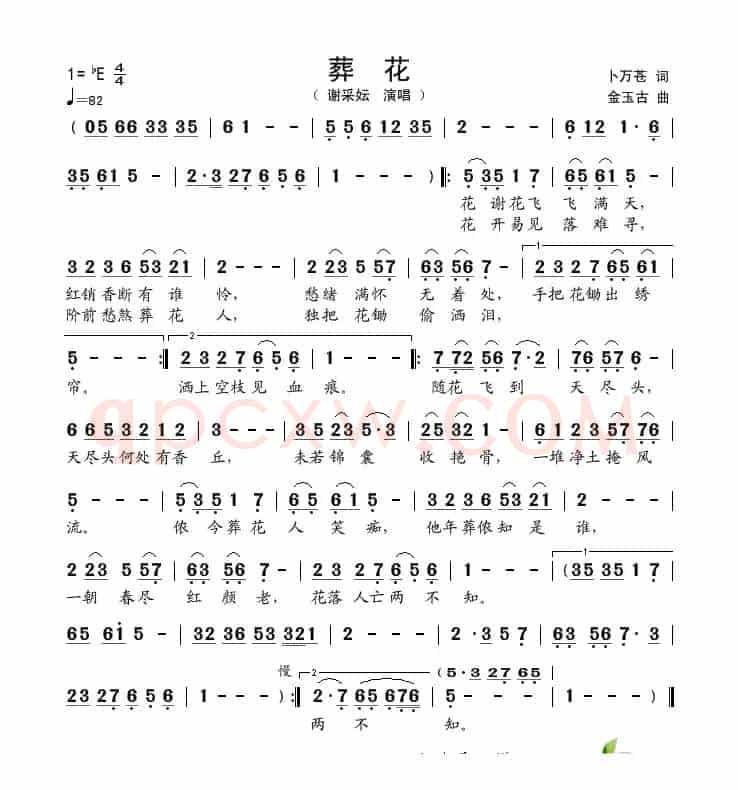 葬 花
1=♭E 4/4
（谢采妘 演唱）
卜万苍 词
♩=82
金玉古 曲
(05 66 33 35 | 6 1 - - | 5 5 6 12 35 | 2 - - - | 6 12 1·6 |
35 61 5 - | 2·3 27 65 6 | 1 - - - ) ‖: 5 35 1 7 | 65 61 5 - |
花 谢花飞 飞 满 天，
花 开易见 落 难 寻，
3 2 3 6 53 21 | 2 - - - | 2 23 5 57 | 63 56 7 - | 1. 2 3 2 7 65 61 |
红销香断有 谁 怜， 愁绪 满怀 无 着 处， 手把花锄出 绣
阶前愁煞葬 花 人， 独把 花锄 偷 洒 泪，
5 - - - :‖ 2. 2 3 2 7 65 6 | 5 - - - ‖: 7 72 56 7·2 | 57 35 6 - |
帘。 洒上空枝见 血 痕。 随花 飞 到 天 尽 头，
6 6 5 3 2 12 - | 35 23 5·3 | 25 32 1 - | 61 23 57 76 |
天尽头何处有香 丘， 未若锦 囊 收 艳 骨， 一堆净土掩 风
5 - - - | 5 35 1 7 | 65 61 5 - | 3 2 3 6 53 21 | 2 - - - |
流。 侬 今葬 花 人 笑 痴， 他年葬侬知 是 谁，
2 23 5 57 | 63 56 7 - | 23 27 6 1 2 6 | 1 - - - | 1. (35 35 1 7 |
一朝 春尽 红 颜 老， 花落 人亡 两 不 知。
65 61 5 - | 32 36 53 321 | 2 - - - | 2·3 57 - | 63 56 3 - |
慢
2. (5·3 27 65
23 27 65 6 | 1 - - ) :‖ 2·7 65 676 | 5 - - - | 1 - - - ‖
两 不 知。
qpcxw.COM